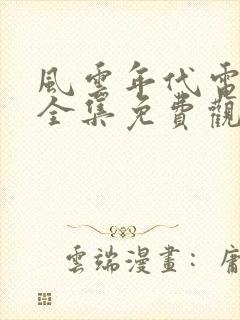 風雲年代電
全集免費觀
雲端漫畫：庸